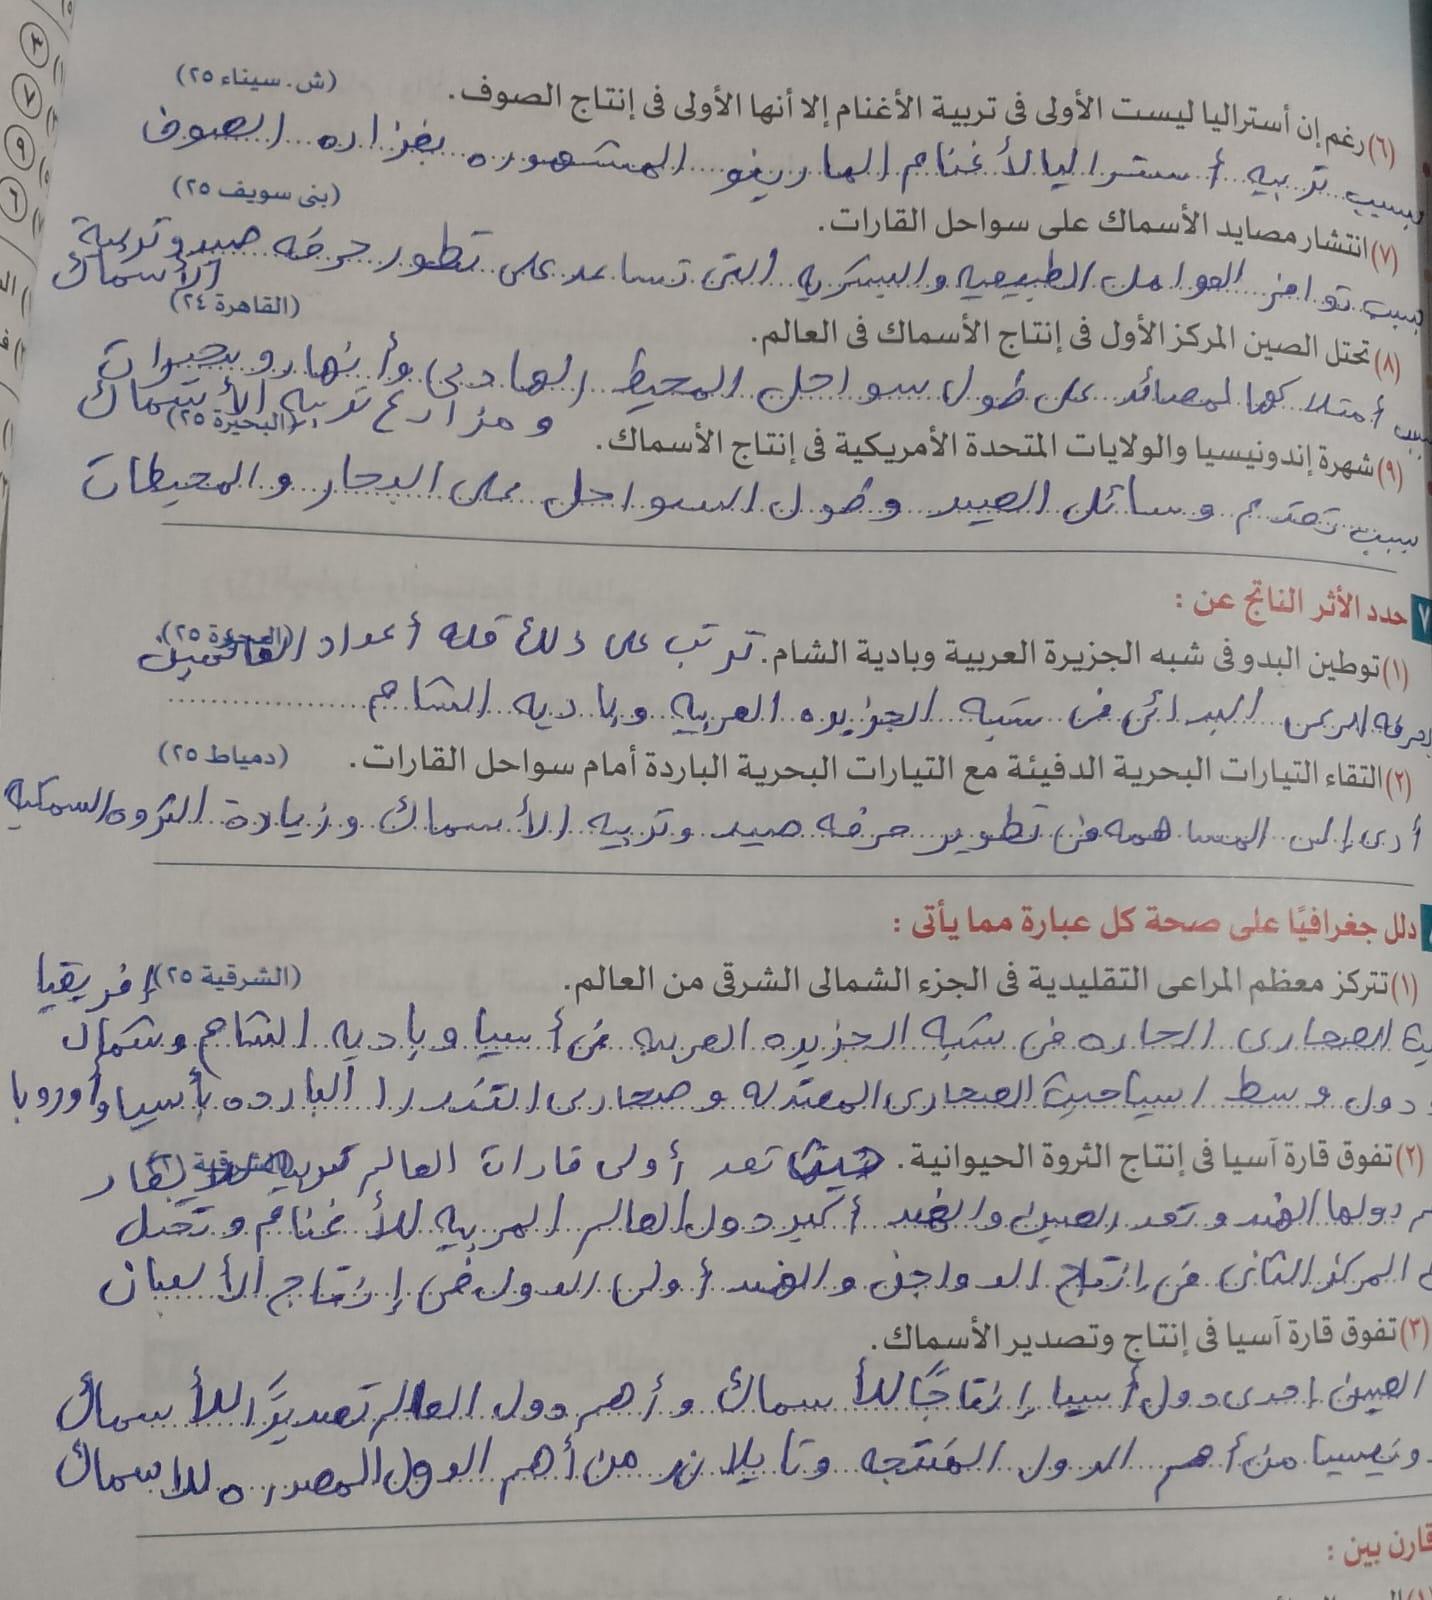 (٦) رغم إن أستراليا ليست الأولى فى تربية الأغنام إلا أنها الأولى فى إنتاج الصوف. (ش. سيناء ٢٥)
بسبب تربيه أستراليا لأغنام المارينو المشهوره بغزاره الصوف
(٧) انتشار مصايد الأسماك على سواحل القارات. (بنى سويف ٢٥)
بسبب توافر العوامل الطبيعيه والبشريه التى تساعد على تطور حرفه صيد وتربية
الأسماك
(٨) تحتل الصين المركز الأول فى إنتاج الأسماك فى العالم. (القاهرة ٢٤)
أمتلاكها لمصائد على طول سواحل المحيط الهادى وأنهار وبحيرات
ومزارع تربيه الأسماك
(٩) شهرة إندونيسيا والولايات المتحدة الأمريكية فى إنتاج الأسماك. (البحيرة ٢٥)
بسبب تقدم وسائل الصيد وطول السواحل على البحار والمحيطات
٧ حدد الأثر الناتج عن :
(١) توطين البدو فى شبه الجزيرة العربية وبادية الشام. ترتب على ذلك قله أعداد
البدائى فى شبه الجزيره العربيه وباديه الشام
(٢) التقاء التيارات البحرية الدفيئة مع التيارات البحرية الباردة أمام سواحل القارات. (دمياط ٢٥)
أدى إلى المساهمه فى تطوير حرفه صيد وتربيه الأسماك وزيادة الثروه السمكيه
دلل جغرافيًا على صحة كل عبارة مما يأتى :
(١) تتركز معظم المراعى التقليدية فى الجزء الشمالى الشرقى من العالم. (الشرقية ٢٥) إفريقيا
الصحارى الحاره فى شبه الجزيره العربيه فى أسيا وباديه الشام وشمال
ودول وسط اسيا حيث الصحارى المعتدله وصحارى التندرا البارده بأسيا وأوروبا
(٢) تفوق قارة آسيا فى إنتاج الثروة الحيوانية. حيث تعد أولى قارات العالم
دولها الهند وتعد الصين والهند أكبر دول العالم المربيه للأغنام وتحتل
المركز الثانى فى إنتاج الدواجن والهند أولى الدول فى إنتاج الألبان
(٣) تفوق قارة آسيا فى إنتاج وتصدير الأسماك.
الصين احدى دول أسيا إنتاجًا للأسماك وأهم دول العالم تصديرًا للأسماك
من أهم الدول المنتجه وتايلاند من أهم الدول المصدره للاسماك
قارن بين :